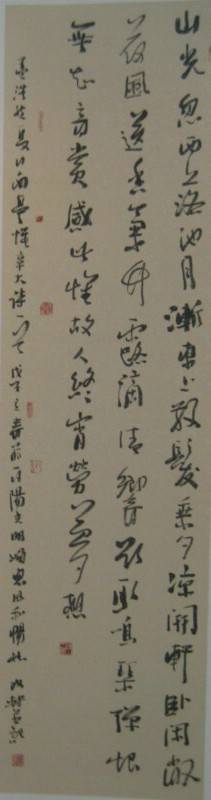 山光忽西落池月漸東上散髮乘夕涼開軒卧閑敞
荷風送香氣竹露滴清響欲取鳴琴彈恨
無知音賞感此懷故人終宵勞夢想
孟浩然夏日南亭懷辛大詩一首戊子之春